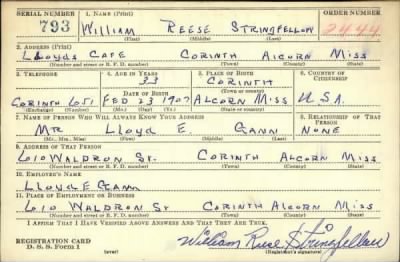 SERIAL NUMBER 1. NAME (Print) ORDER NUMBER
793 WILLIAM REESE STRINGFELLOW 2444
(First) (Middle) (Last)
2. ADDRESS (Print)
LLOYDS CAFE CORINTH ALCORN MISS
(Number and street or R. F. D. number) (Town) (County) (State)
3. TELEPHONE 4. AGE IN YEARS 5. PLACE OF BIRTH 6. COUNTRY OF CITIZENSHIP
33 CORINTH
DATE OF BIRTH (Town or county)
CORINTH 651 FEB 23 1907 ALCORN MISS U.S.A.
(Exchange) (Number) (Mo.) (Day) (Yr.) (State or country)
7. NAME OF PERSON WHO WILL ALWAYS KNOW YOUR ADDRESS 8. RELATIONSHIP OF THAT PERSON
MR LLOYD E GANN NONE
(Mr., Mrs., Miss) (First) (Middle) (Last)
9. ADDRESS OF THAT PERSON
610 WALDRON ST. CORINTH ALCORN MISS
(Number and street or R. F. D. number) (Town) (County) (State)
10. EMPLOYER'S NAME
LLOYD E GANN
11. PLACE OF EMPLOYMENT OR BUSINESS
610 WALDRON ST CORINTH ALCORN MISS
(Number and street or R. F. D. number) (Town) (County) (State)
I AFFIRM THAT I HAVE VERIFIED ABOVE ANSWERS AND THAT THEY ARE TRUE.
REGISTRATION CARD
D. S. S. FORM 1 (over) William Reese Stringfellow
(Registrant's signature)